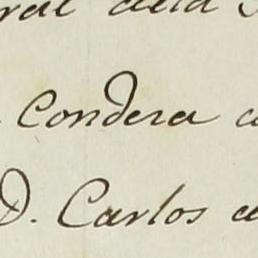 ral dela
Condera
D. Carlos